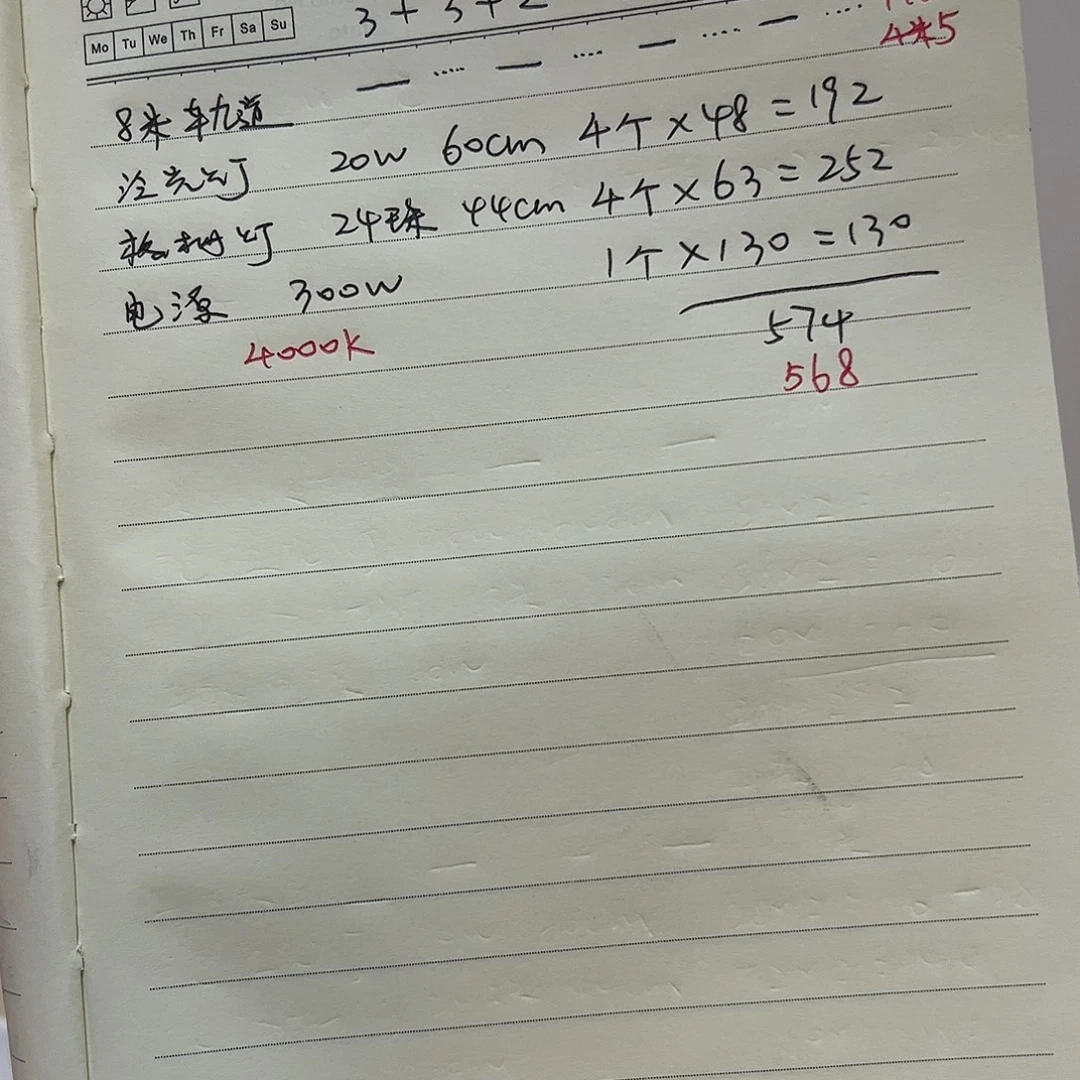 Mo Tu We Th Fr Sa Su
3 + 3 + 2
4米5
8米轨道
泛光灯 20W 60cm 4个×48=192
格栅灯 24珠 44cm 4个×63=252
电源 300W 1个×130=130
574
4000K
568